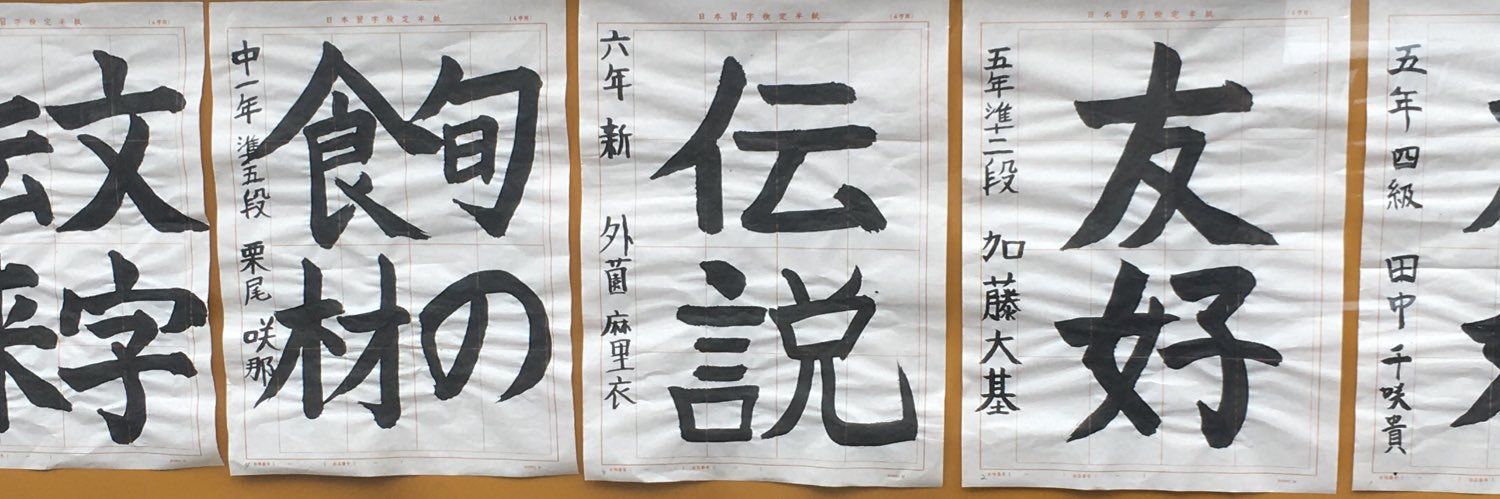 文字
伝来
日本習字検定半紙
旬の
食材
中一年 準五段 栗尾 咲那
日本習字検定半紙
伝説
六年 新 外薗 麻里衣
日本習字検定半紙
友好
五年 準二段 加藤大基
五年 四級 田中千咲貴